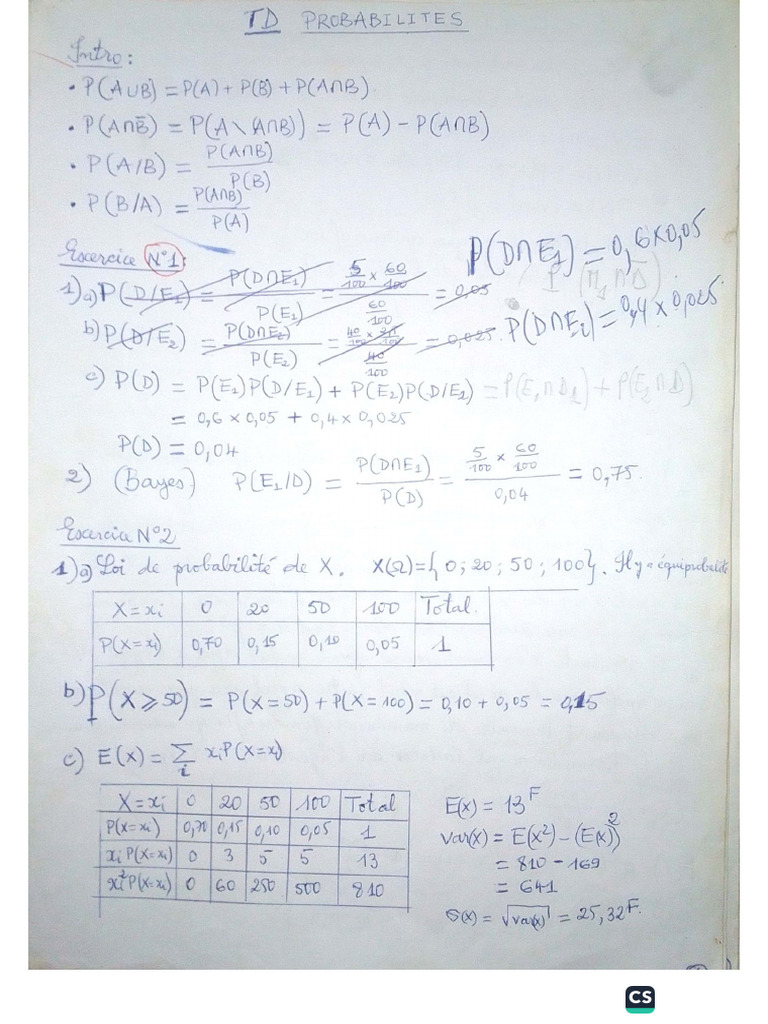 TD PROBABILITES
Intro :
• P(A∪B) = P(A) + P(B) + P(A∩B).
• P(A∩B̄) = P(A∖(A∩B)) = P(A) − P(A∩B)
• P(A/B) = P(A∩B) / P(B)
• P(B/A) = P(A∩B) / P(A)
Exercice N°1:
P(D∩E₁) = 0,6×0,05
1) a) P(D/E₁) = P(D∩E₁) / P(E₁) = 5/100 × 60/100 / 60/100 = 0,05
b) P(D/E₂) = P(D∩E₂) / P(E₂) = 40/100 × 25/100 / 40/100 = 0,025. P(D∩E₂) = 0,4 × 0,025
c) P(D) = P(E₁)P(D/E₁) + P(E₂)P(D/E₂) = P(E₁∩D₁) + P(E₂∩D)
= 0,6 × 0,05 + 0,4 × 0,025
P(D) = 0,04
2) (Bayes) P(E₁/D) = P(D∩E₁) / P(D) = 5/100 × 60/100 / 0,04 = 0,75.
Exercice N°2
1) a) Loi de probabilité de X. X(Ω) = { 0 ; 20 ; 50 ; 100 }. Il y a équiprobabilité
X = xi 0 20 50 100 Total.
P(X = xi) 0,70 0,15 0,10 0,05 1
b) P(X ⩾ 50) = P(X = 50) + P(X = 100) = 0,10 + 0,05 = 0,15
c) E(X) = Σi xiP(X = xi)
X = xi 0 20 50 100 Total
P(X = xi) 0,70 0,15 0,10 0,05 1
xi P(X = xi) 0 3 5 5 13
xi² P(X = xi) 0 60 250 500 810
E(X) = 13 F
Var(X) = E(X²) − (E(X))²
= 810 − 169
= 641
σ(X) = √Var(X) = 25,32 F.
CS